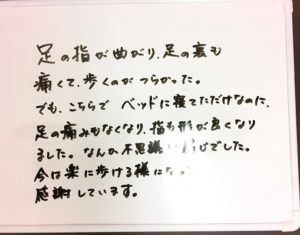 足の指が曲がり、足の裏も
痛くて、歩くのがつらかった。
でも、こちらで ベッドに寝てただけなのに、
足の痛みもなくなり、指も形が良くなり
ました。なんか不思議 じでした。
今は楽に歩ける様にな
感謝しています。